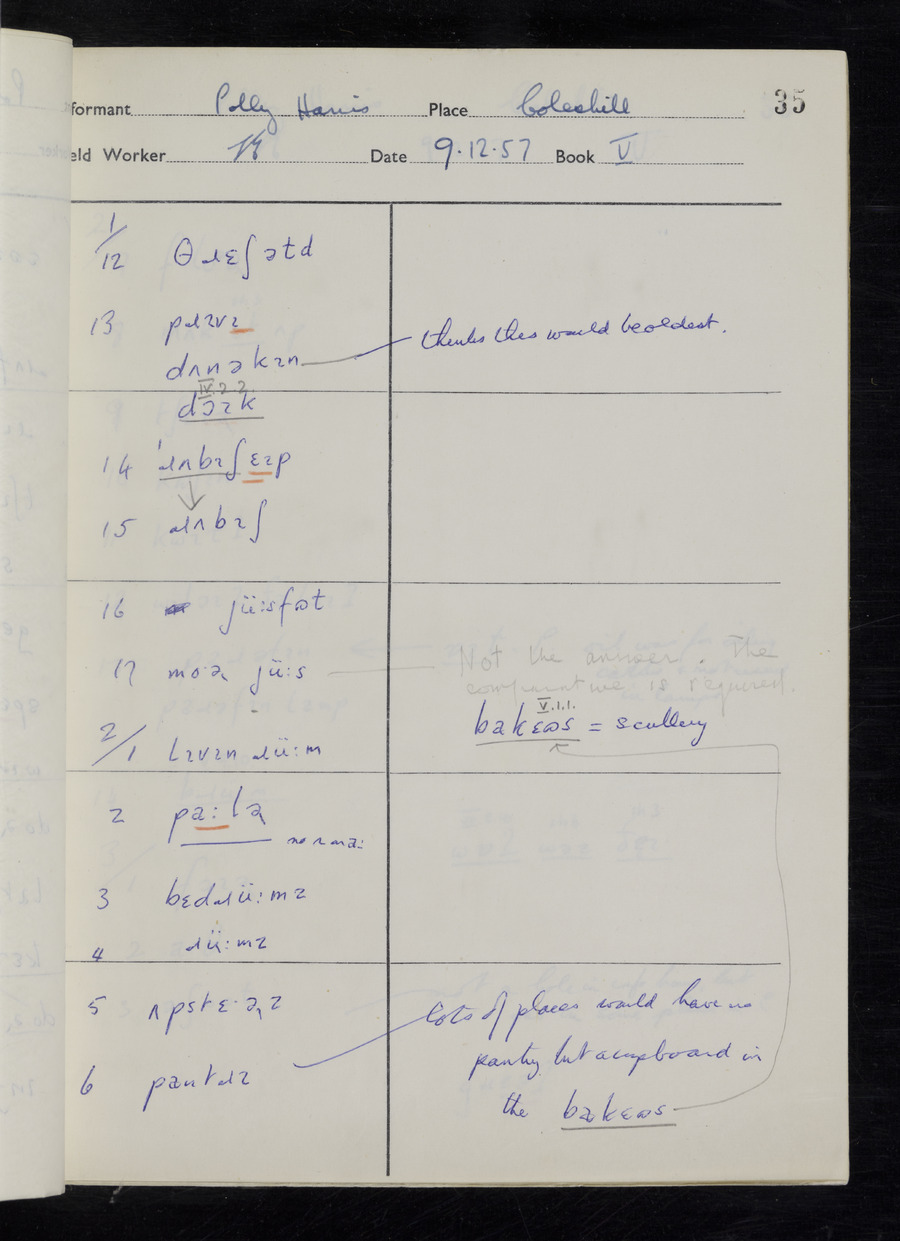 formant Polly Harris Place Coleshill 35
eld Worker Date 9.12.57 Book V
1/12 θɹɛʃətd
13 pɹɪvɪ
dʌnəkɪn thinks this would be oldest.
IV.2.2.
dɔɪk
14 ˈɹʌbɪʃɛɪp
15 ɹʌbɪʃ
16 jüːsfʊt
17 jüːs Not the answer. The
comparative is required.
V.1.1.
bakɛʊs = scullery
2/1 lɪvɪn ɹüːm
2 paːlə
3 bɛdɹüːmz
4 ɹüːmz
5 ʌpstɛ·əz lots of places would have no
pantry but a cupboard in
6 pantɹɪ
the bakɛʊs